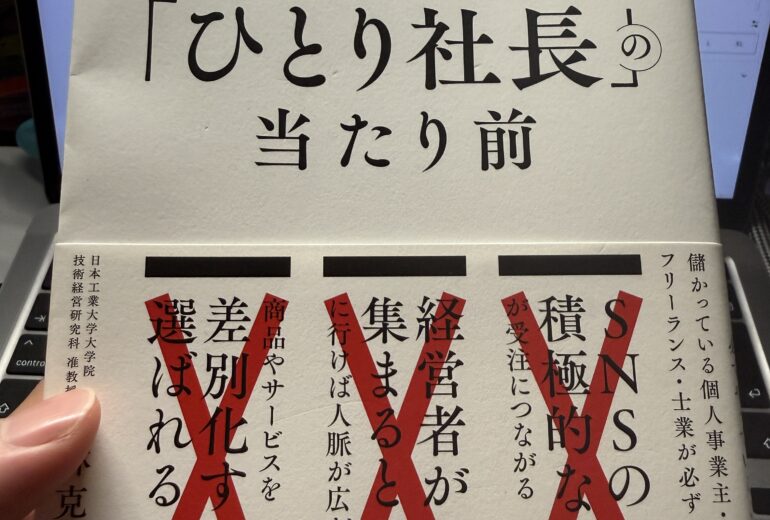 「ひとり社長」の
当たり前
儲かっている個人事業主・
フリーランス・士業が必ず
SNSの
積極的な
が受注につながる
経営者が
集まると
に行けば人脈が広が
商品やサービスを
差別化す
選ばれる
日本工業大学大学院
技術経営研究科 准教授
克
control